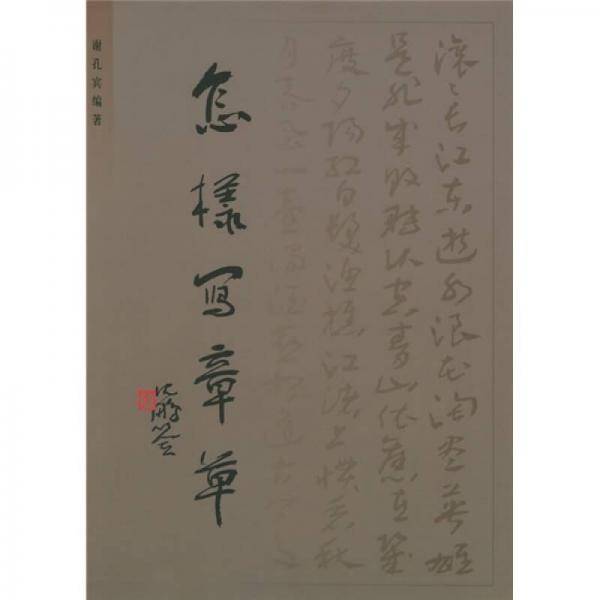 谢孔宾编著
怎樣写章草
沈鹏签
滚〻长江东逝水浪花淘尽英雄
是非成败转头空青山依旧在几
度夕阳红白发渔樵江渚上惯看秋
月春风一壶浊酒喜相逢古